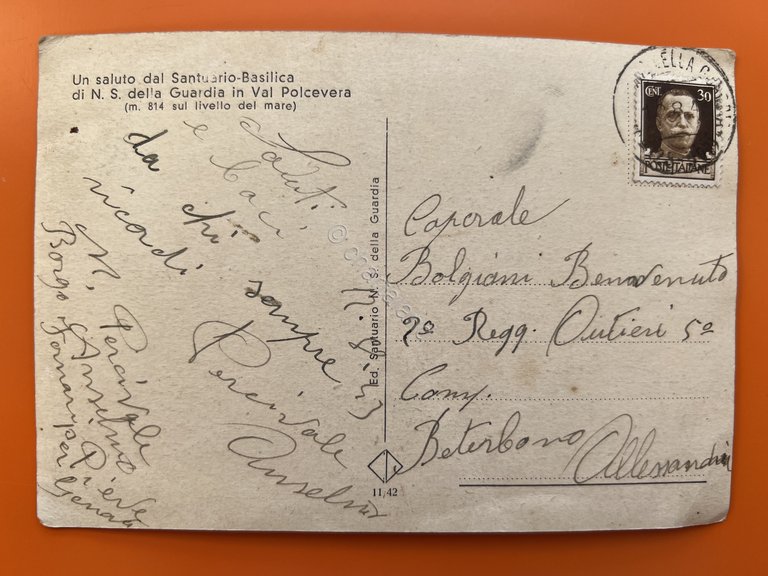 Un saluto dal Santuario-Basilica
di N. S. della Guardia in Val Polcevera
(m. 814 sul livello del mare)
Saluti
e baci
da chi sempre
ricordi
Percivale
Anselmo
M. Percivale
Anselmo Pieve
Borgo Fornari per
Genova
Ed. Santuario N. S. della Guardia
11,42
CENT 30
POSTE ITALIANE
Caporale
Bolgiani Benvenuto
2º Regg. Autieri 5º
Comp.
Beterbono
Allessandria